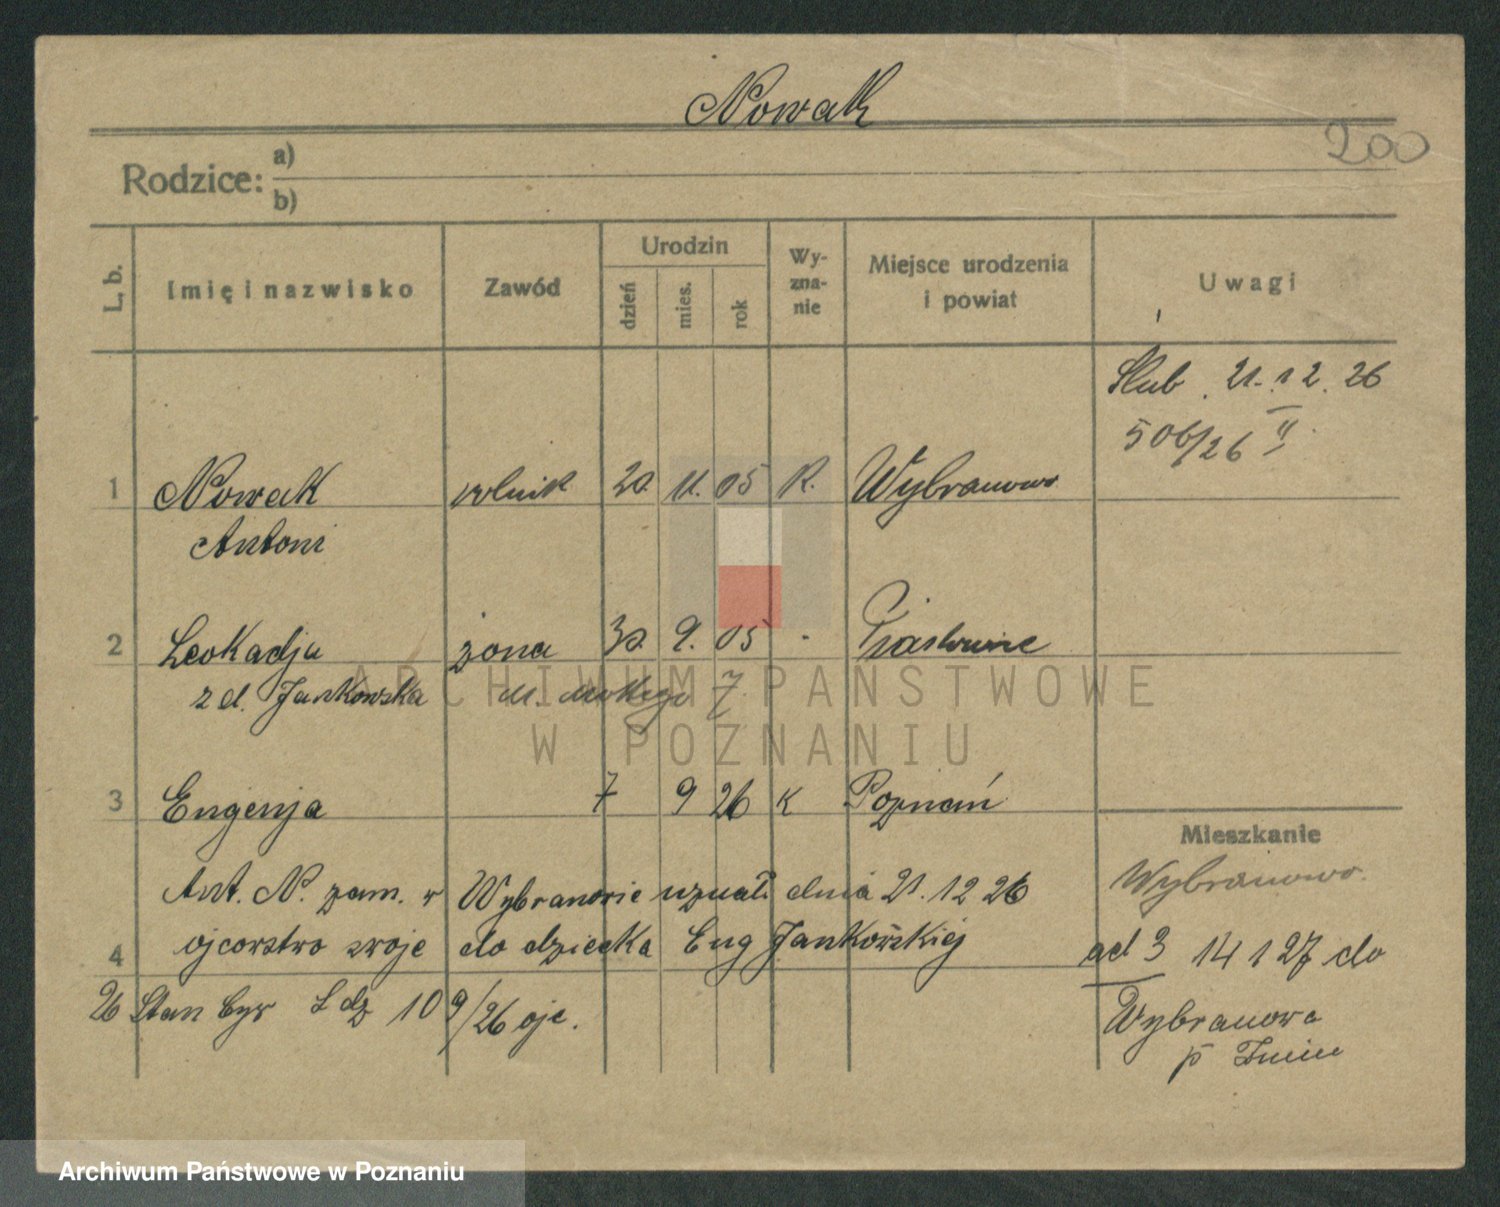 Nowak
200
Rodzice: a)
b)
L. b.
Imię i nazwisko
Zawód
Urodzin
dzień
mies.
rok
Wy-
zna-
nie
Miejsce urodzenia
i powiat
Uwagi
Ślub. 21.12.26
506/26 II
1 Nowak rolnik 20. 11. 05 R. Wybranowo
Antoni
2 Leokadja żona 30. 9. 05 Piastowice
z d. Jankowska 7
3 Eugenja 7 9 26 K Poznań
Mieszkanie
Wybranowo.
Ant. N. zam. w Wybranowie uznał dnia 21.12 26
4 ojcowstwo swoje do dziecka Eug Jankowskiej
ad 3 14 1 27 do
26 Stan Cyw L dz 109/26 ojc.
Wybranowa
p Żnin
ARCHIWUM PAŃSTWOWE
W POZNANIU
Archiwum Państwowe w Poznaniu